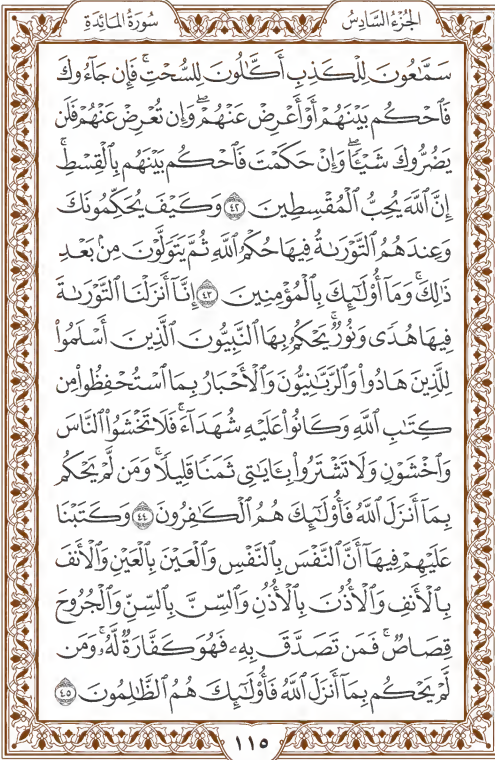 الجُزْءُ السَّادِسُ
سُورَةُ المَائِدَةِ
سَمَّٰعُونَ لِلْكَذِبِ أَكَّٰلُونَ لِلسُّحْتِۚ فَإِن جَآءُوكَ
فَٱحْكُم بَيْنَهُمْ أَوْ أَعْرِضْ عَنْهُمْۖ وَإِن تُعْرِضْ عَنْهُمْ فَلَن
يَضُرُّوكَ شَيْـٔٗاۖ وَإِنْ حَكَمْتَ فَٱحْكُم بَيْنَهُم بِٱلْقِسْطِۚ
إِنَّ ٱللَّهَ يُحِبُّ ٱلْمُقْسِطِينَ ٤٢ وَكَيْفَ يُحَكِّمُونَكَ
وَعِندَهُمُ ٱلتَّوْرَىٰةُ فِيهَا حُكْمُ ٱللَّهِ ثُمَّ يَتَوَلَّوْنَ مِنۢ بَعْدِ
ذَٰلِكَۚ وَمَآ أُو۟لَٰٓئِكَ بِٱلْمُؤْمِنِينَ ٤٣ إِنَّآ أَنزَلْنَا ٱلتَّوْرَىٰةَ
فِيهَا هُدٗى وَنُورٞۚ يَحْكُمُ بِهَا ٱلنَّبِيُّونَ ٱلَّذِينَ أَسْلَمُوا۟
لِلَّذِينَ هَادُوا۟ وَٱلرَّبَّٰنِيُّونَ وَٱلْأَحْبَارُ بِمَا ٱسْتُحْفِظُوا۟ مِن
كِتَٰبِ ٱللَّهِ وَكَانُوا۟ عَلَيْهِ شُهَدَآءَۚ فَلَا تَخْشَوُا۟ ٱلنَّاسَ
وَٱخْشَوْنِ وَلَا تَشْتَرُوا۟ بِـَٔايَٰتِي ثَمَنٗا قَلِيلٗاۚ وَمَن لَّمْ يَحْكُم
بِمَآ أَنزَلَ ٱللَّهُ فَأُو۟لَٰٓئِكَ هُمُ ٱلْكَٰفِرُونَ ٤٤ وَكَتَبْنَا
عَلَيْهِمْ فِيهَآ أَنَّ ٱلنَّفْسَ بِٱلنَّفْسِ وَٱلْعَيْنَ بِٱلْعَيْنِ وَٱلْأَنفَ
بِٱلْأَنفِ وَٱلْأُذُنَ بِٱلْأُذُنِ وَٱلسِّنَّ بِٱلسِّنِّ وَٱلْجُرُوحَ
قِصَاصٞۚ فَمَن تَصَدَّقَ بِهِۦ فَهُوَ كَفَّارَةٞ لَّهُۥۚ وَمَن
لَّمْ يَحْكُم بِمَآ أَنزَلَ ٱللَّهُ فَأُو۟لَٰٓئِكَ هُمُ ٱلظَّٰلِمُونَ ٤٥
١١٥